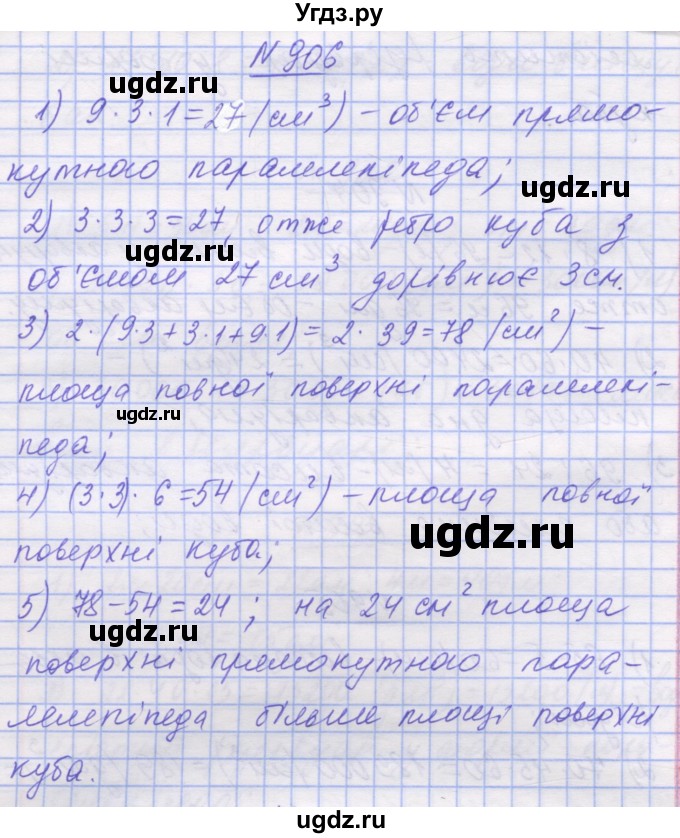 Угдз.ру
N 906
1) 9·3·1=27 (см³) – об'єм прямо-
кутного паралелепіпеда;
ugdz.ru
ugdz.ru
2) 3·3·3=27, отже ребро куба з
ugdz.ru
об'ємом 27 см³ дорівнює 3 см.
3) 2·(9·3+3·1+9·1)=2·39=78 (см²) –
площа повної поверхні паралелепі-
ugdz.ru
педа;
4) (3·3)·6=54 (см²) – площа повної
ugdz.ru
поверхні куба;
5) 78–54=24; на 24 см² площа
ugdz.ru
поверхні прямокутного пара-
лелепіпеда більше площі поверхні
куба.
ugdz.ru